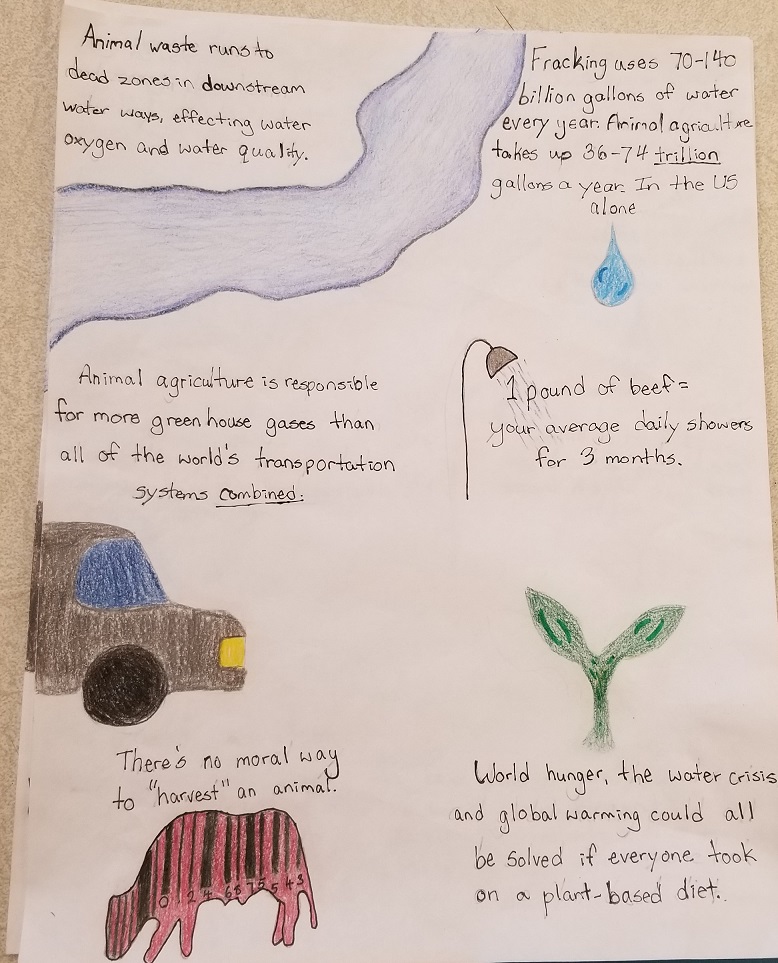 Animal waste runs to
dead zones in downstream
water ways, effecting water
oxygen and water quality.
Fracking uses 70-140
billion gallons of water
every year. Animal agriculture
takes up 36-74 trillion
gallons a year. In the US
alone
Animal agriculture is responsible
for more green house gases than
all of the world's transportation
systems combined.
1 pound of beef =
your average daily showers
for 3 months.
There's no moral way
to "harvest" an animal.
World hunger, the water crisis
and global warming could all
be solved if everyone took
on a plant-based diet.